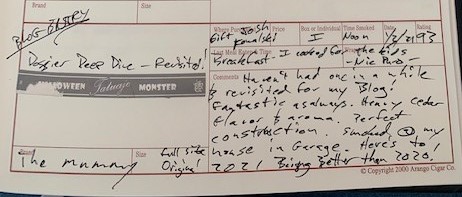 Brand
Size
Where Purchased
Price
Box or Individual
Time Smoked
Date
Rating
BLOG ENTRY
Gift Josh Kowalski
I
Noon
1/2/21
93
Last Meal
Time
Breakfast - I cooked for the kids
Dossier Deep Dive - Revisited!
- Nic Puro -
HALLOWEEN Tatuaje MONSTER
Comments
Haven't had one in a while
& revisited for my Blog!
Fantastic as always. Heavy cedar
flavor & aroma. Perfect
construction. Smoked @ my
house in Garage. Here's to
2021 Being better than 2020!
The Mummy
Size
full size
Original
© Copyright 2000 Arango Cigar Co.